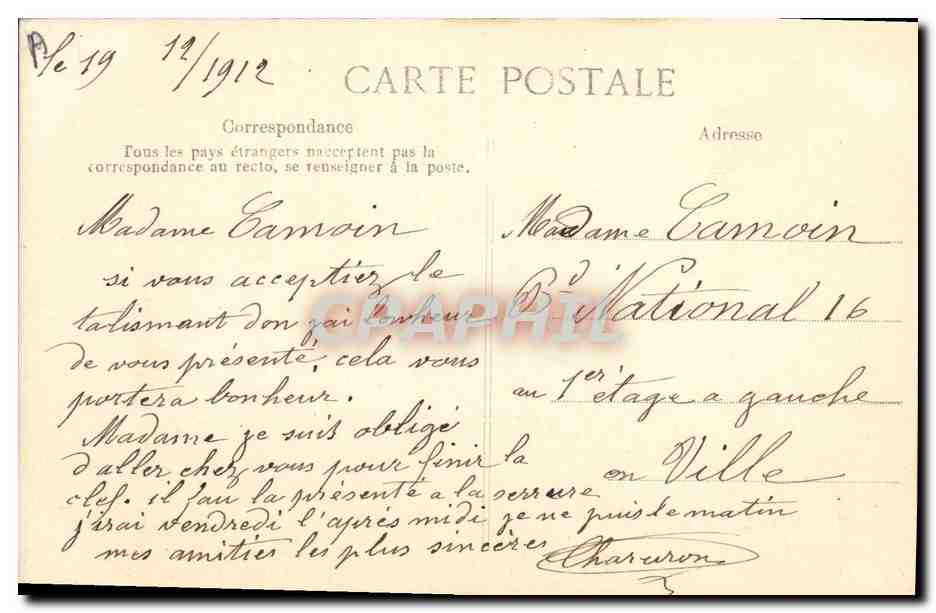 le 19 12/1912
CARTE POSTALE
Correspondance
Tous les pays étrangers n'acceptent pas la
correspondance au recto, se renseigner à la poste.
Madame Camoin
si vous acceptiez le
talismant don j'ai bonheur
de vous présenté, cela vous
portera bonheur.
Madame je suis obligé
d'aller chez vous pour finir la
clef. il fau la présenté a la serrure
j'irai vendredi l'après midi je ne puis le matin
mes amitiés les plus sincères
Charuron
Adresse
Madame Camoin
Bd National 16
au 1er étage a gauche
en Ville
CPAPHIL